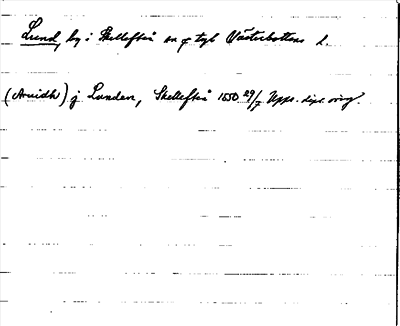 Lund, by i Skellefteå sn o tgl Västerbottens l.
(Arvidh) j Lunden, Skellefteå 1550 29/7 Upps. dipl. orig.